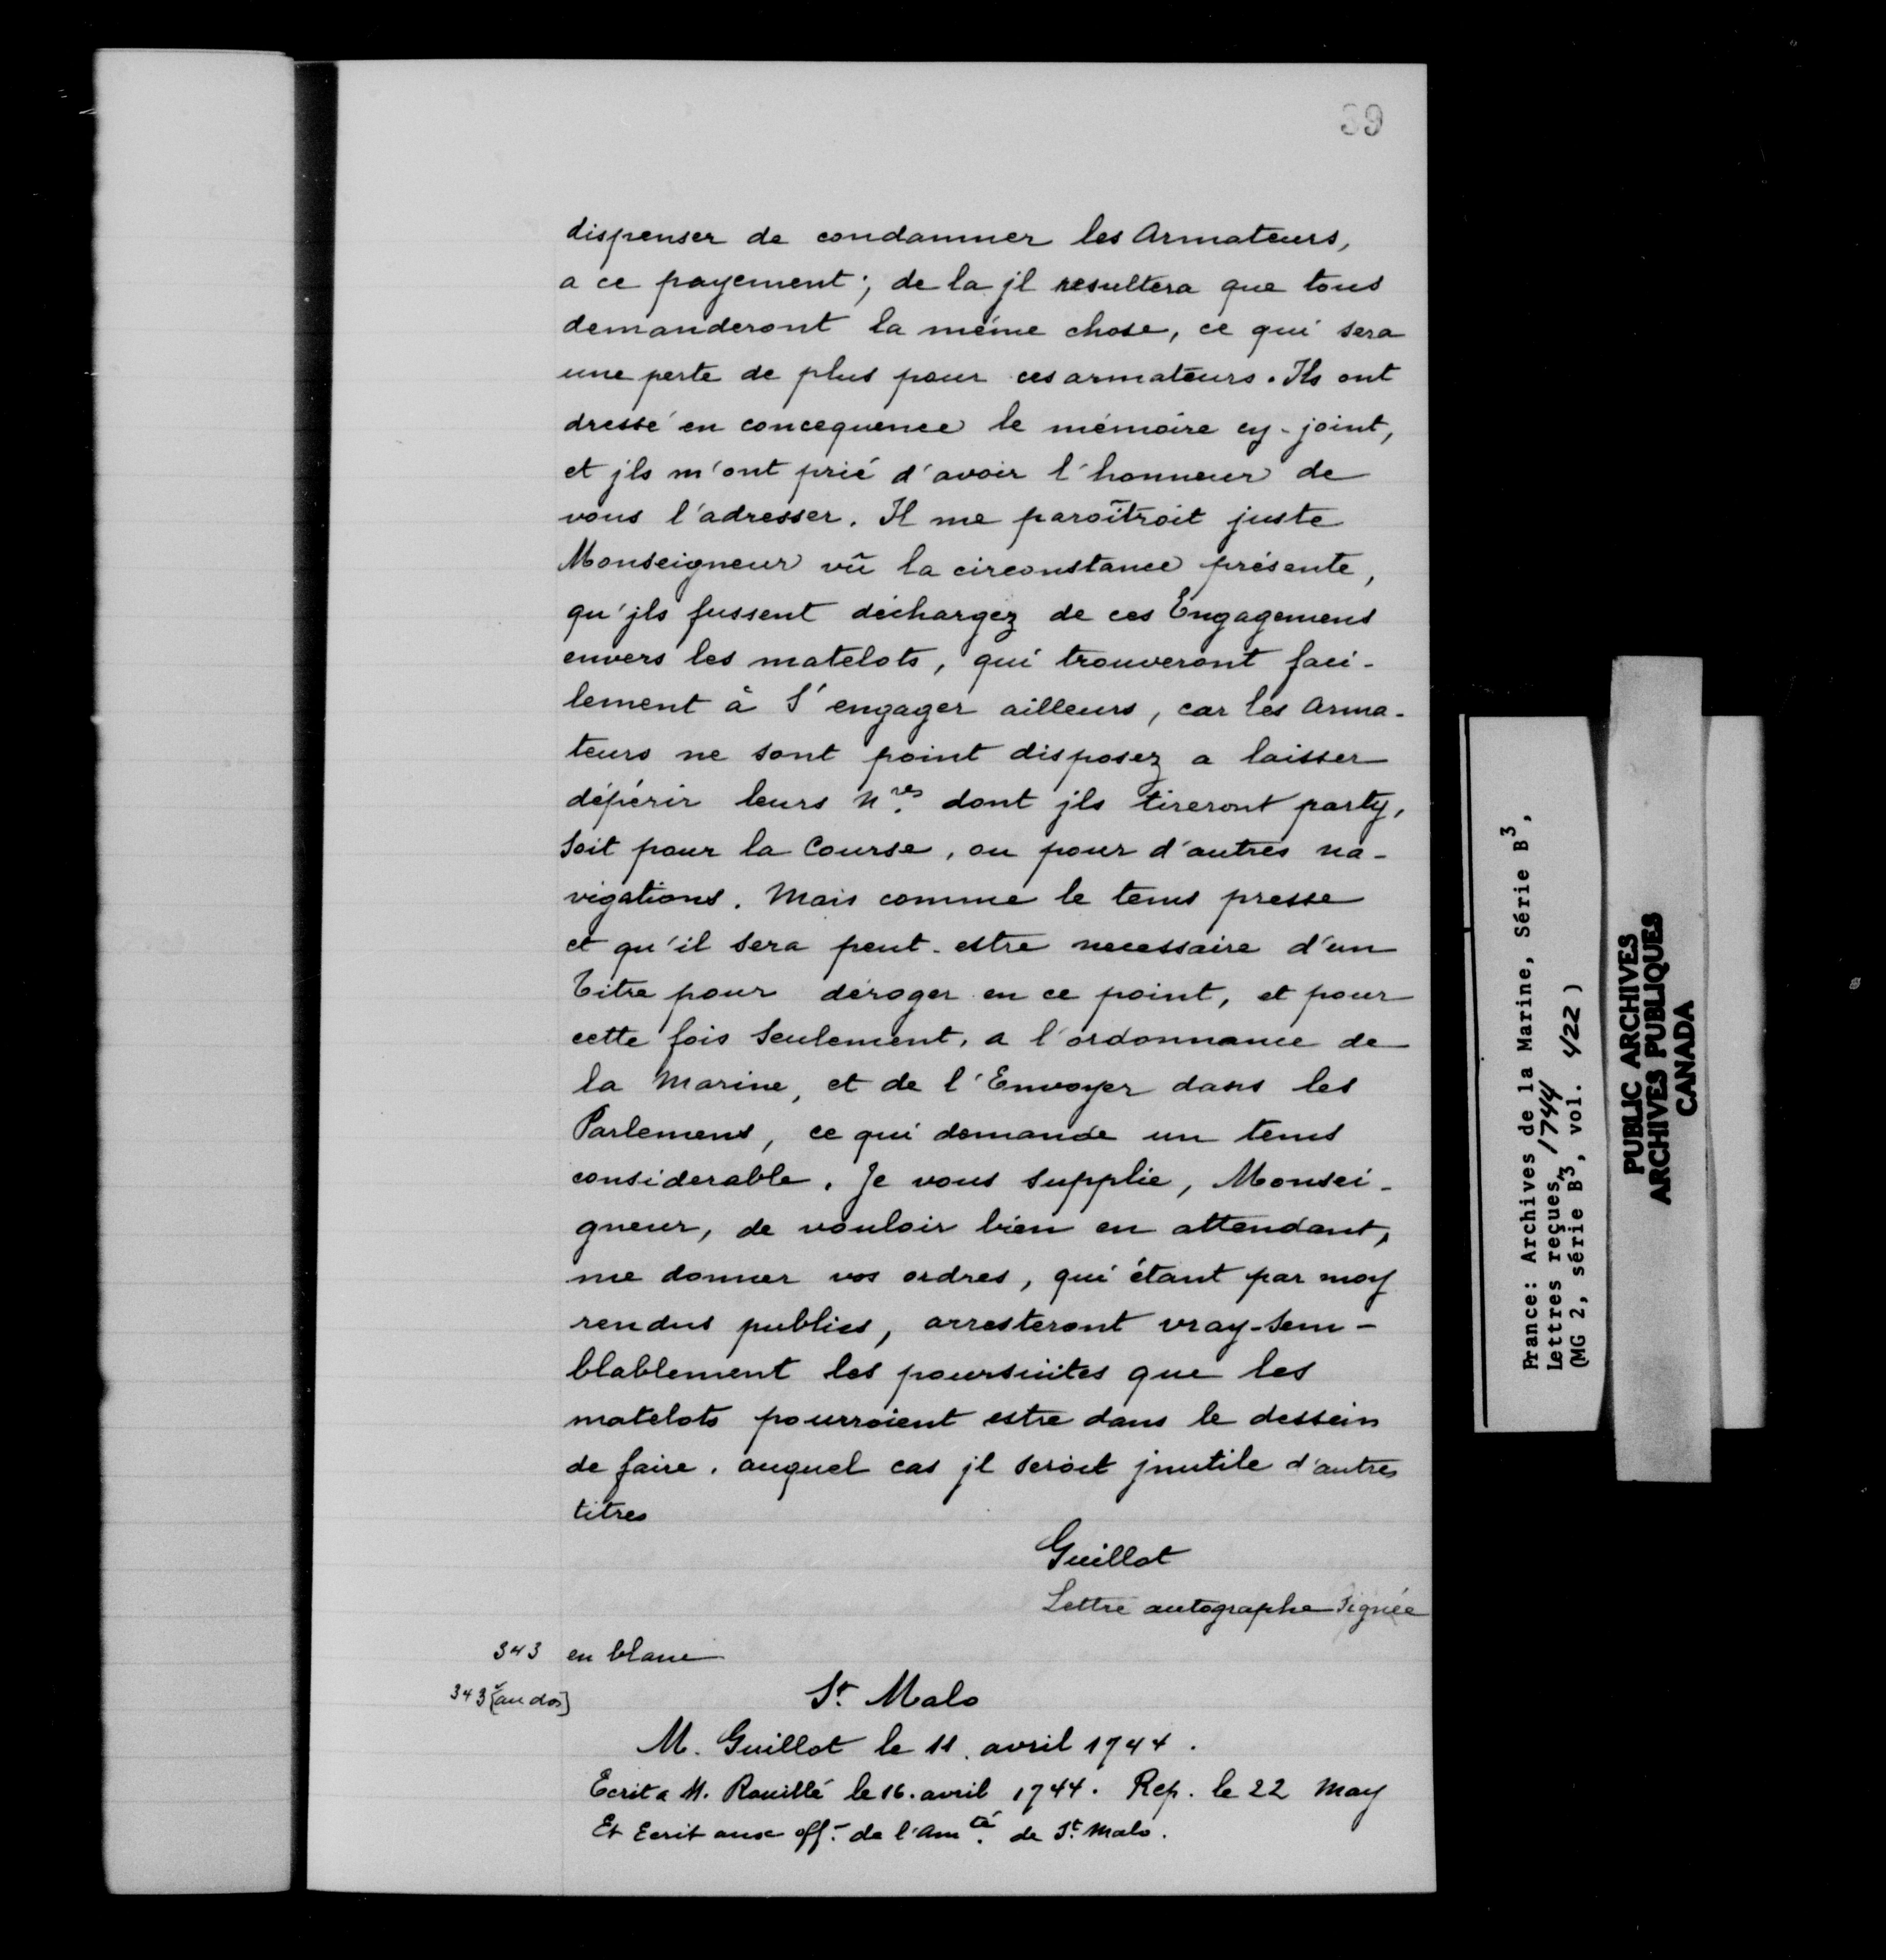 39
dispenser de condamner les Armateurs,
a ce payement; de la jl resultera que tous
demanderont la même chose, ce qui sera
une perte de plus pour ces armateurs. Ils ont
dressé en concequence le mémoire cy-joint,
et jls m'ont prié d'avoir l'honneur de
vous l'adresser. Il me paroîtroit juste
Monseigneur vû la circonstance présente,
qu'jls fussent déchargez de ces Engagemens
envers les matelots, qui trouveront faci-
lement à S'engager ailleurs, car les Arma-
teurs ne sont point disposez a laisser
dépérir leurs N.res dont jls tireront party,
soit pour la Course, ou pour d'autres na-
vigations. Mais comme le tems presse
et qu'il sera peut-estre necessaire d'un
Titre pour déroger en ce point, et pour
cette fois seulement, a l'ordonnance de
la Marine, et de l'Envoyer dans les
Parlemens, ce qui demande un tems
considerable. Je vous supplie, Monsei-
gneur, de vouloir bien en attendant,
me donner vos ordres, qui étant par moy
rendus publics, arresteront vray-sem-
blablement les poursuites que les
matelots pourroient estre dans le dessein
de faire. auquel cas jl seroit jnutile d'autres
titres
Guillot
Lettre autographe signée
343 en blanc
343v [au dos] St. Malo
M. Guillot le 11. avril 1744.
Ecrit a M. Rouillé le 16. avril 1744. Rep. le 22 May
Et Ecrit aux off.- de l'Am.té de St. Malo.
France: Archives de la Marine, Série B3,
Lettres reçues, 1744
(MG 2, série B3, vol. 422)
PUBLIC ARCHIVES
ARCHIVES PUBLIQUES
CANADA